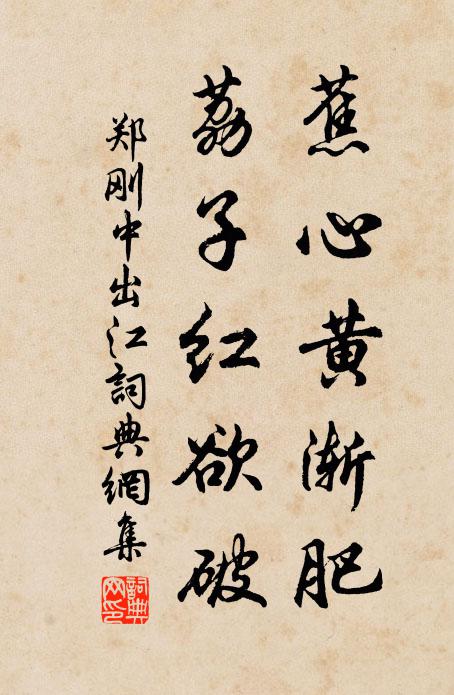 蕉心黄渐肥
荔子红欲破
郑刚中出江詞典網集
詞典网印